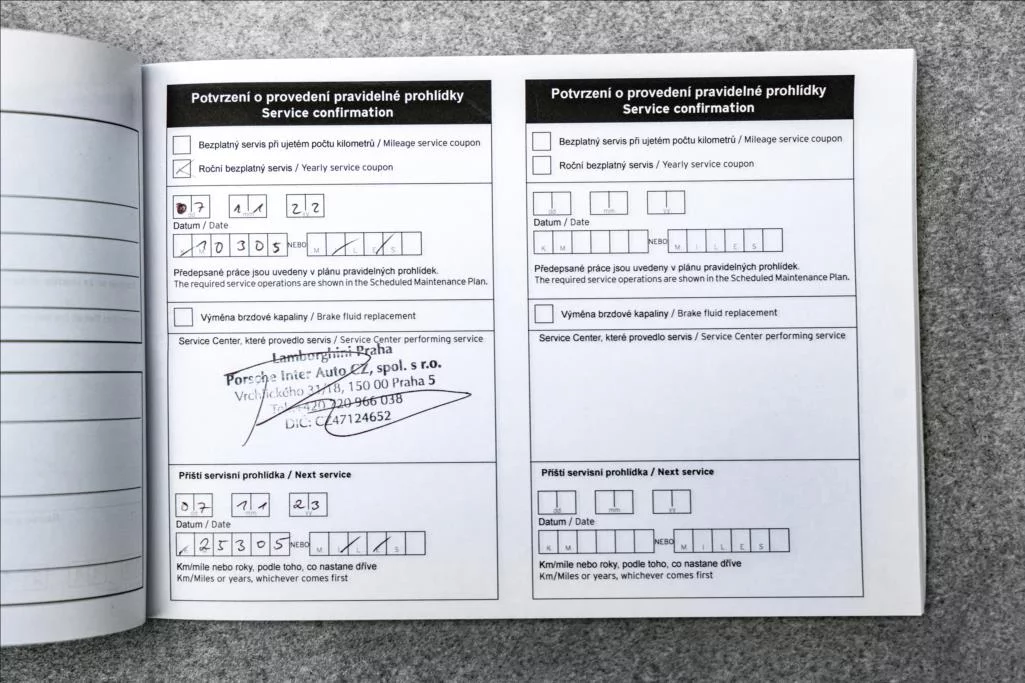 Potvrzení o provedení pravidelné prohlídky
Service confirmation
Bezplatný servis při ujetém počtu kilometrů / Mileage service coupon
Roční bezplatný servis / Yearly service coupon
07 11 22
dd mm yy
Datum / Date
10305 NEBO M I L E S
Předepsané práce jsou uvedeny v plánu pravidelných prohlídek.
The required service operations are shown in the Scheduled Maintenance Plan.
Výměna brzdové kapaliny / Brake fluid replacement
Service Center, které provedlo servis / Service Center performing service
Lamborghini Praha
Porsche Inter Auto CZ, spol. s r.o.
Vrchlického 31/18, 150 00 Praha 5
Tel.: +420 220 966 038
DIČ: CZ47124652
Příští servisní prohlídka / Next service
07 11 23
dd mm yy
Datum / Date
25305 NEBO M I L E S
Km/míle nebo roky, podle toho, co nastane dříve
Km/Miles or years, whichever comes first
Potvrzení o provedení pravidelné prohlídky
Service confirmation
Bezplatný servis při ujetém počtu kilometrů / Mileage service coupon
Roční bezplatný servis / Yearly service coupon
dd mm yy
Datum / Date
K M NEBO M I L E S
Předepsané práce jsou uvedeny v plánu pravidelných prohlídek.
The required service operations are shown in the Scheduled Maintenance Plan.
Výměna brzdové kapaliny / Brake fluid replacement
Service Center, které provedlo servis / Service Center performing service
Příští servisní prohlídka / Next service
dd mm yy
Datum / Date
K M NEBO M I L E S
Km/míle nebo roky, podle toho, co nastane dříve
Km/Miles or years, whichever comes first